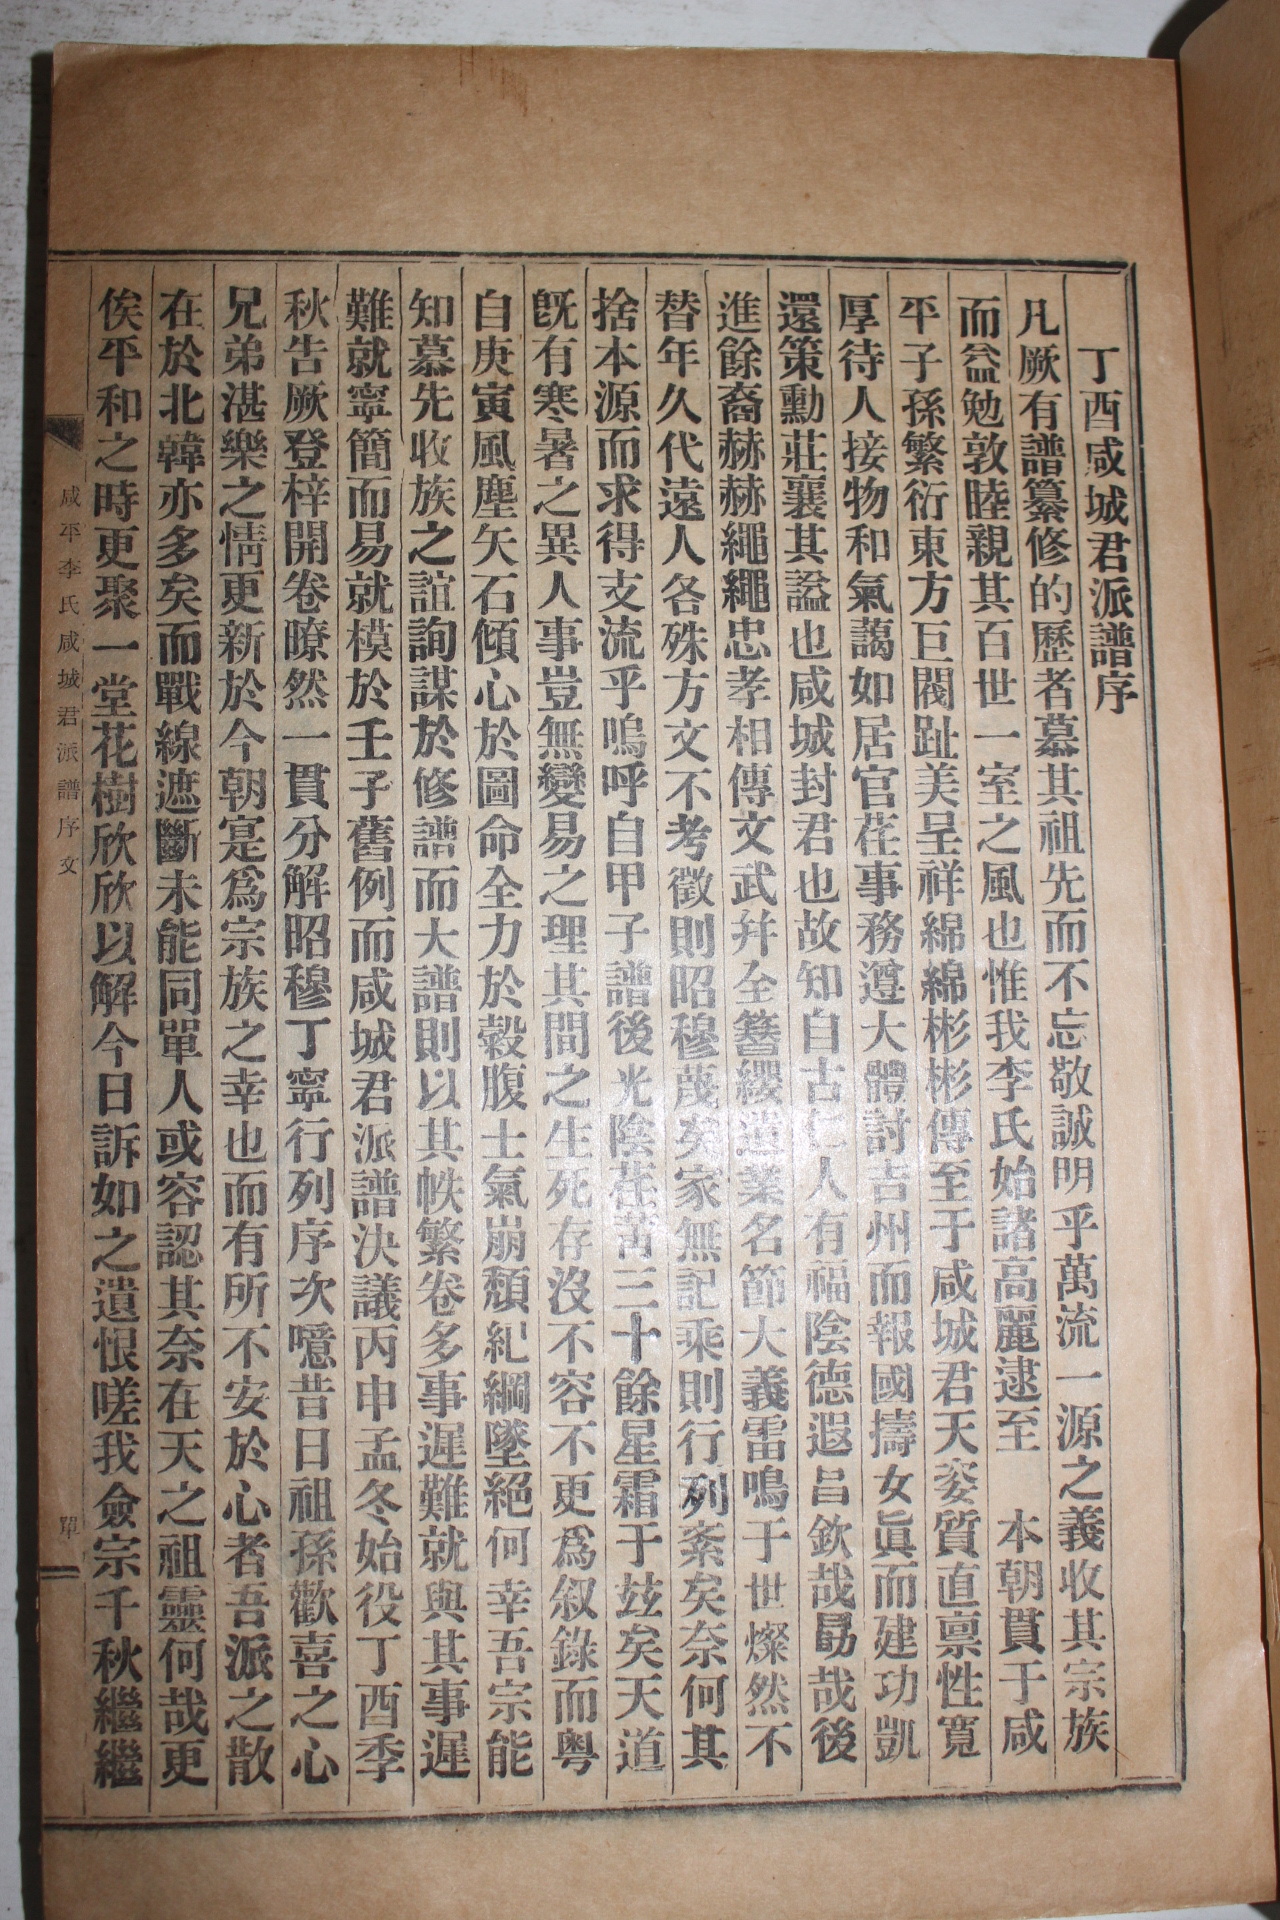 丁酉咸城君派譜序
凡厥有譜纂修的歷者慕其祖先而不忘敬誠明乎萬流一源之義收其宗族
而益勉敦睦親其百世一室之風也惟我李氏始諸高麗逮至 本朝貫于咸
平子孫繁衍東方巨閥趾美呈祥綿綿彬彬傳至于咸城君天姿質直禀性寬
厚待人接物和氣藹如居官莅事務遵大體討吉州而報國擣女眞而建功凱
還策勳莊襄其謚也咸城封君也故知自古仁人有福陰德遐昌欽哉勗哉後
進餘裔赫赫繩繩忠孝相傳文武幷全簪纓遺業名節大義雷鳴于世燦然不
替年久代遠人各殊方文不考徵則昭穆蔑矣家無記乘則行列紊矣奈何其
捨本源而求得支流乎嗚呼自甲子譜後光陰荏苒三十餘星霜于玆矣天道
旣有寒暑之異人事豈無變易之理其間之生死存沒不容不更爲叙錄而粤
自庚寅風塵矢石傾心於圖命全力於穀腹士氣崩頹紀綱墜絕何幸吾宗能
知慕先收族之誼詢謀於修譜而大譜則以其帙繁卷多事遲難就與其事遲
難就寧簡而易就模於壬子舊例而咸城君派譜決議丙申孟冬始役丁酉季
秋告厥登梓開卷暸然一貫分解昭穆丁寧行列序次噫昔日祖孫歡喜之心
兄弟湛樂之情更新於今朝寔爲宗族之幸也而有所不安於心者吾派之散
在於北韓亦多矣而戰線遮斷未能同單人或容認其奈在天之祖靈何哉更
俟平和之時更聚一堂花樹欣欣以解今日訴如之遺恨嗟我僉宗千秋繼繼
咸平李氏咸城君派譜序文
單